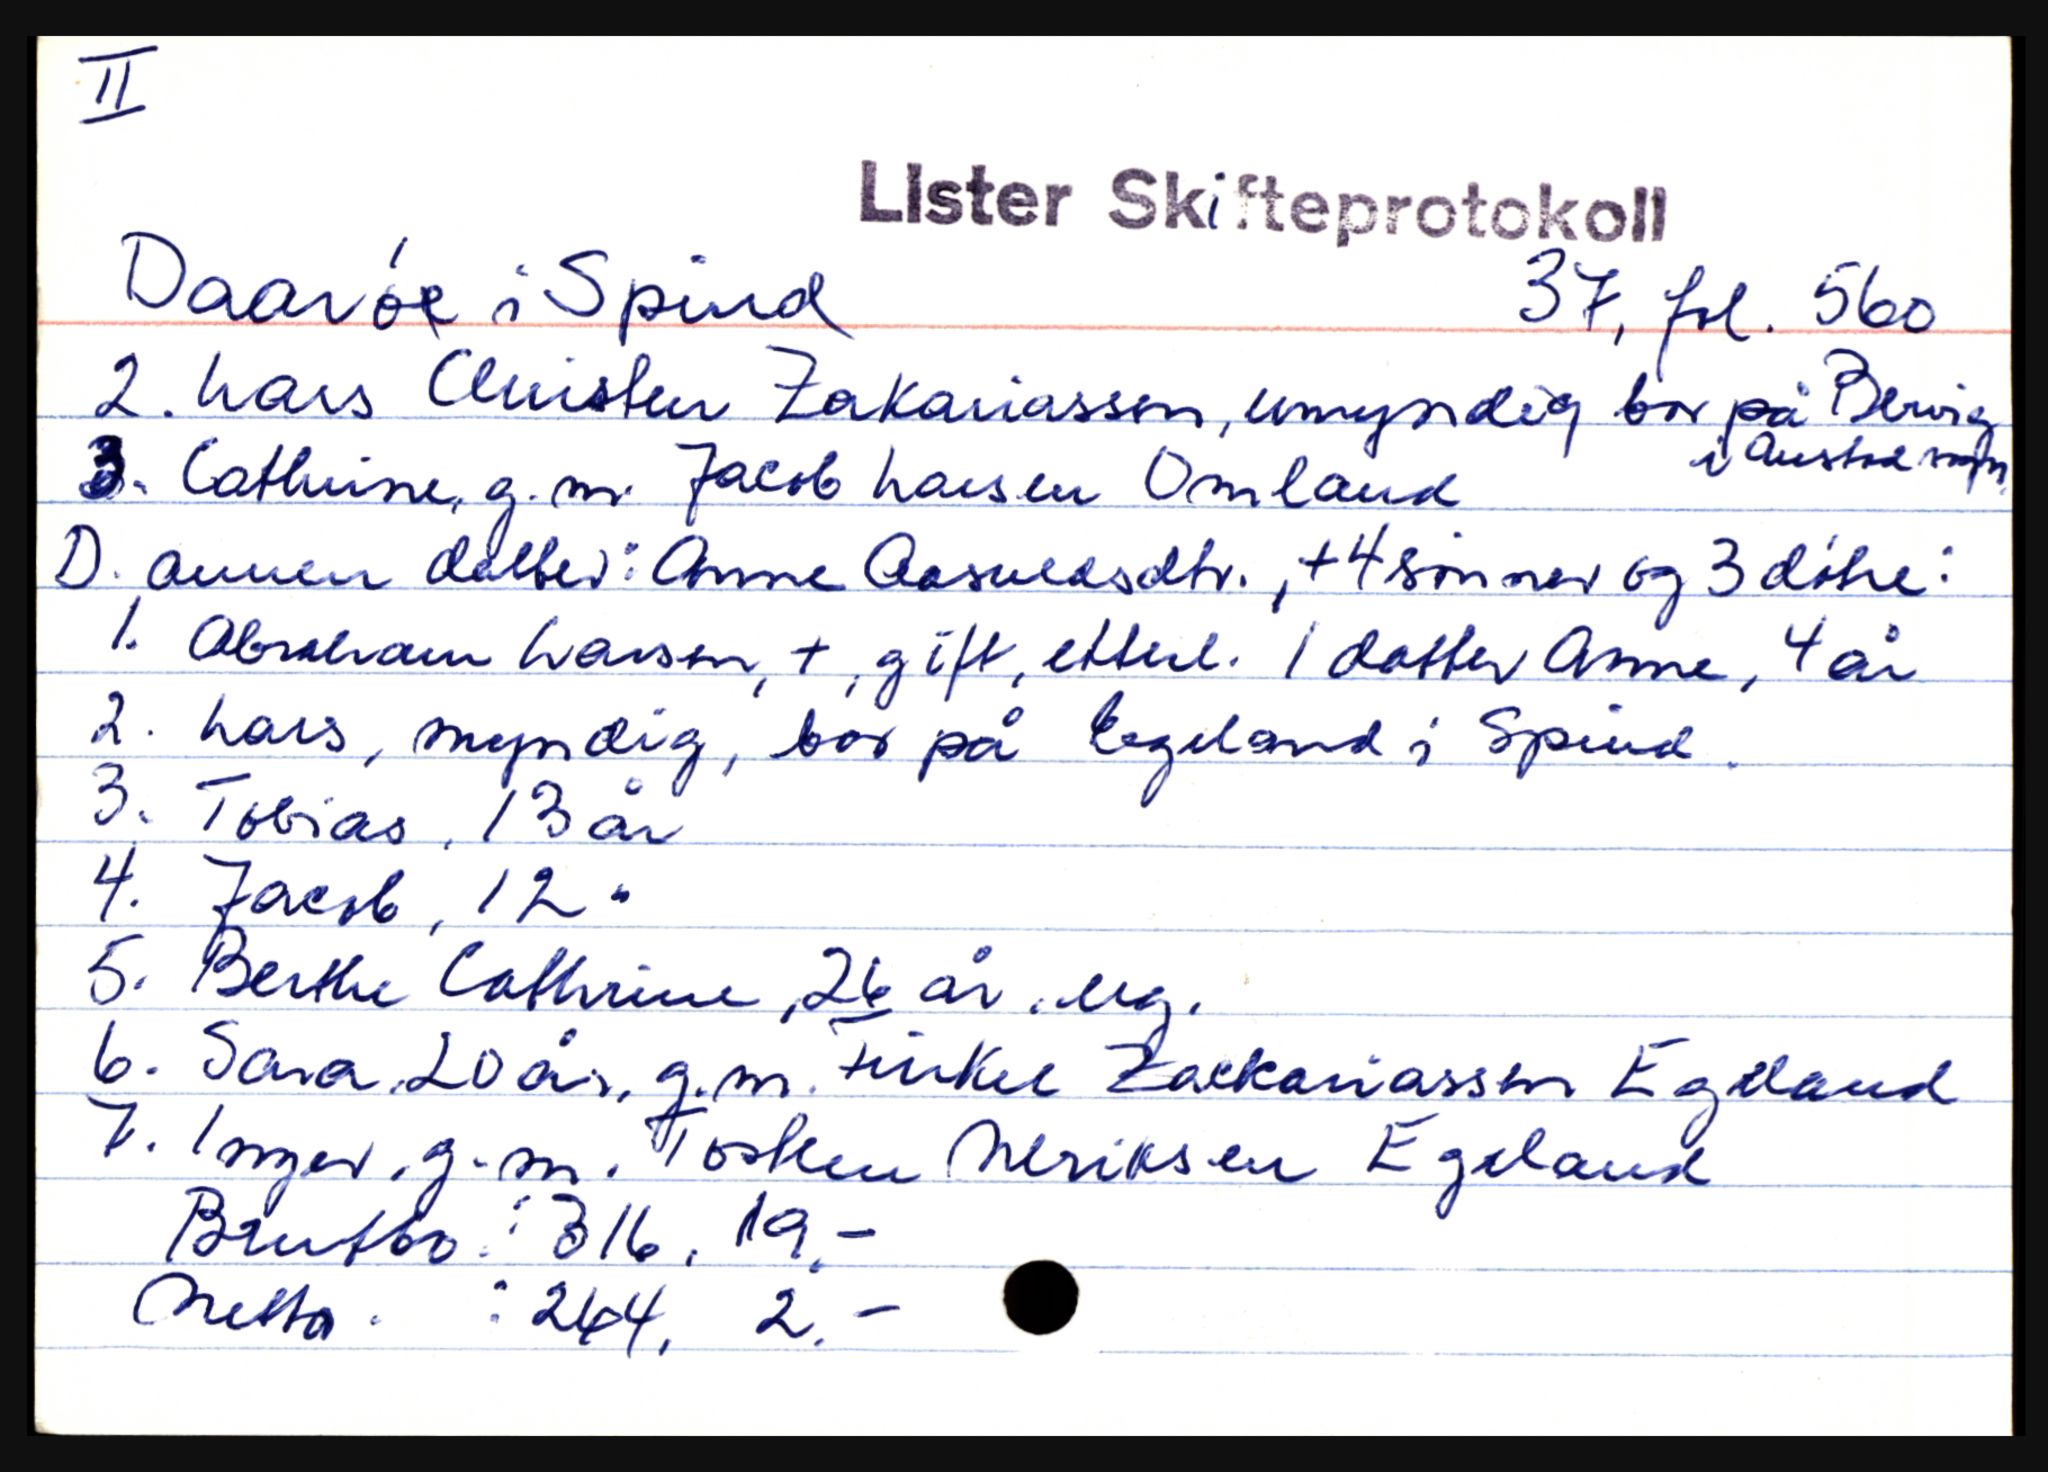 II
Lister Skifteprotokoll
Daarøe i Spind 37, fol. 560
2. Lars Christen Zakariassen, umyndig bor på Bervig
i Austad sogn.
3. Cathrine, g.m. Jacob Larsen Omland
D. annen datter: Anne Aasueldsdtr., + 4 sønner og 3 døtre:
1. Abraham Larsen, +, gift, etterl. 1 datter Anne, 4 år
2. Lars, myndig, bor på Egeland i Spind.
3. Tobias, 13 år
4. Jacob, 12 "
5. Berthe Cathrine, 26 år, ug.
6. Sara, 20 år, g.m. Tinkel Zackariassen Egeland
7. Inger, g.m. Tosten Neriksen Egeland
Brutto : 316, 19.-
Netto. : 264, 2.-